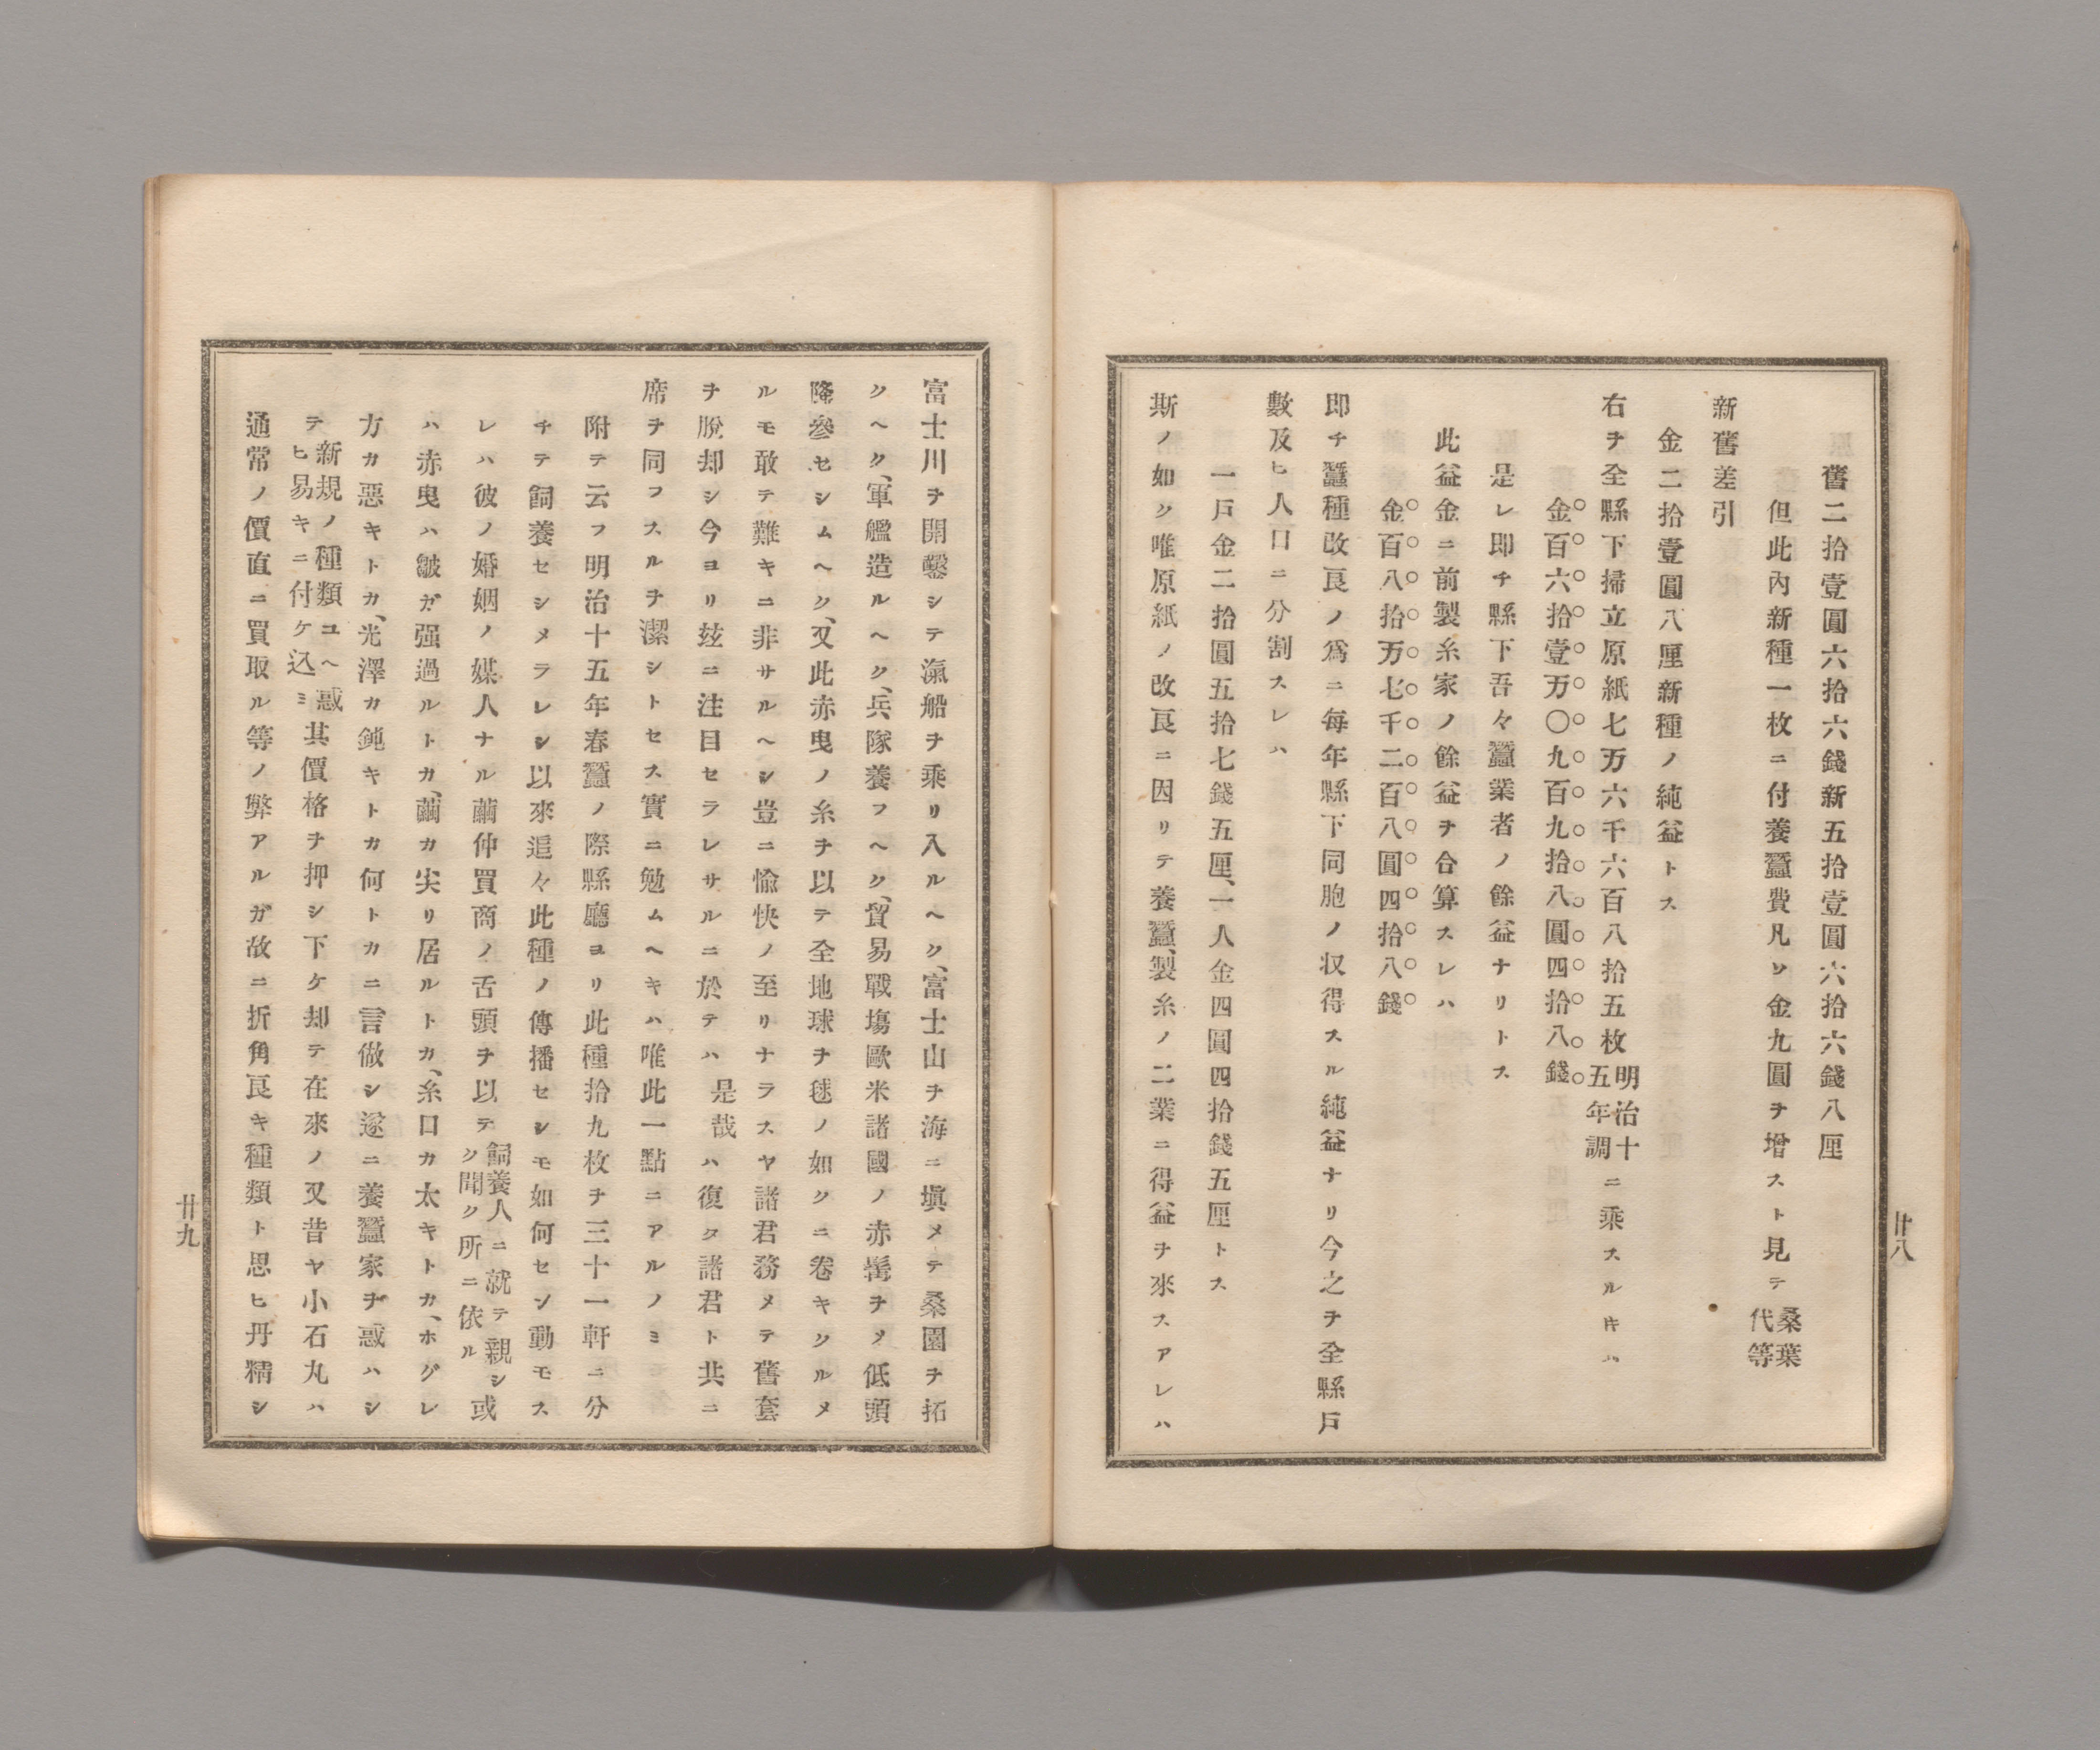 舊二拾壹圓六拾六錢新五拾壹圓六拾六錢八厘
但此內新種一枚ニ付養蠶費凡ソ金九圓ヲ增スト見テ桑葉代等
新舊差引
金二拾壹圓八厘新種ノ純益トス
右ヲ全縣下掃立原紙七万六千六百八拾五枚明治十五年調ニ乘スルキハ
金百六拾壹万〇九百九拾八圓四拾八錢
是レ卽チ縣下吾々蠶業者ノ餘益ナリトス
此益金ニ前製糸家ノ餘益ヲ合算スレハ
金百八拾万七千二百八圓四拾八錢
卽チ蠶種改良ノ爲ニ每年縣下同胞ノ収得スル純益ナリ今之ヲ全縣戶
數及ヒ人口ニ分割スレハ
一戶金二拾圓五拾七錢五厘、一人金四圓四拾錢五厘トス
斯ノ如ク唯原紙ノ改良ニ因リテ養蠶、製糸ノ二業ニ得益ヲ來スアレハ
廿八
富士川ヲ開鑿シテ滊船ヲ乘リ入ルヘク、富士山ヲ海ニ塡メテ桑園ヲ拓
クヘク、軍艦造ルヘク、兵隊養フヘク、貿易戰塲歐米諸國ノ赤髯ヲメ低頭
降參セシムヘク、又此赤曳ノ糸ヲ以テ全地球ヲ毬ノ如クニ卷キツルメ
ルモ敢テ難キニ非サルヘシ豈ニ愉快ノ至リナラスヤ諸君務メテ舊套
ヲ脫却シ今ヨリ玆ニ注目セラレサルニ於テハ是哉ハ復タ諸君ト共ニ
席ヲ同フスルヲ潔シトセス實ニ勉ムヘキハ唯此一點ニアルノミ
附テ云フ明治十五年春蠶ノ際縣廳ヨリ此種拾九枚ヲ三十一軒ニ分
チテ飼養セシメラレシ以來追々此種ノ傳播セシモ如何セン動モス
レハ彼ノ婚姻ノ媒人ナル繭仲買商ノ舌頭ヲ以テ飼養人ニ就テ親シク聞ク所ニ依ル或
ハ赤曳ハ皺ガ强過ルトカ、繭カ尖リ居ルトカ、糸口カ太キトカ、ホグレ
方カ惡キトカ、光澤カ鈍キトカ何トカニ言倣シ遂ニ養蠶家ヲ惑ハシ
テ新規ノ種類ユヘ惑ヒ易キニ付ケ込ミ其價格ヲ押シ下ケ却テ在來ノ又昔ヤ小石丸ハ
通常ノ價直ニ買取ル等ノ弊アルガ故ニ折角良キ種類ト思ヒ丹精シ
廿九